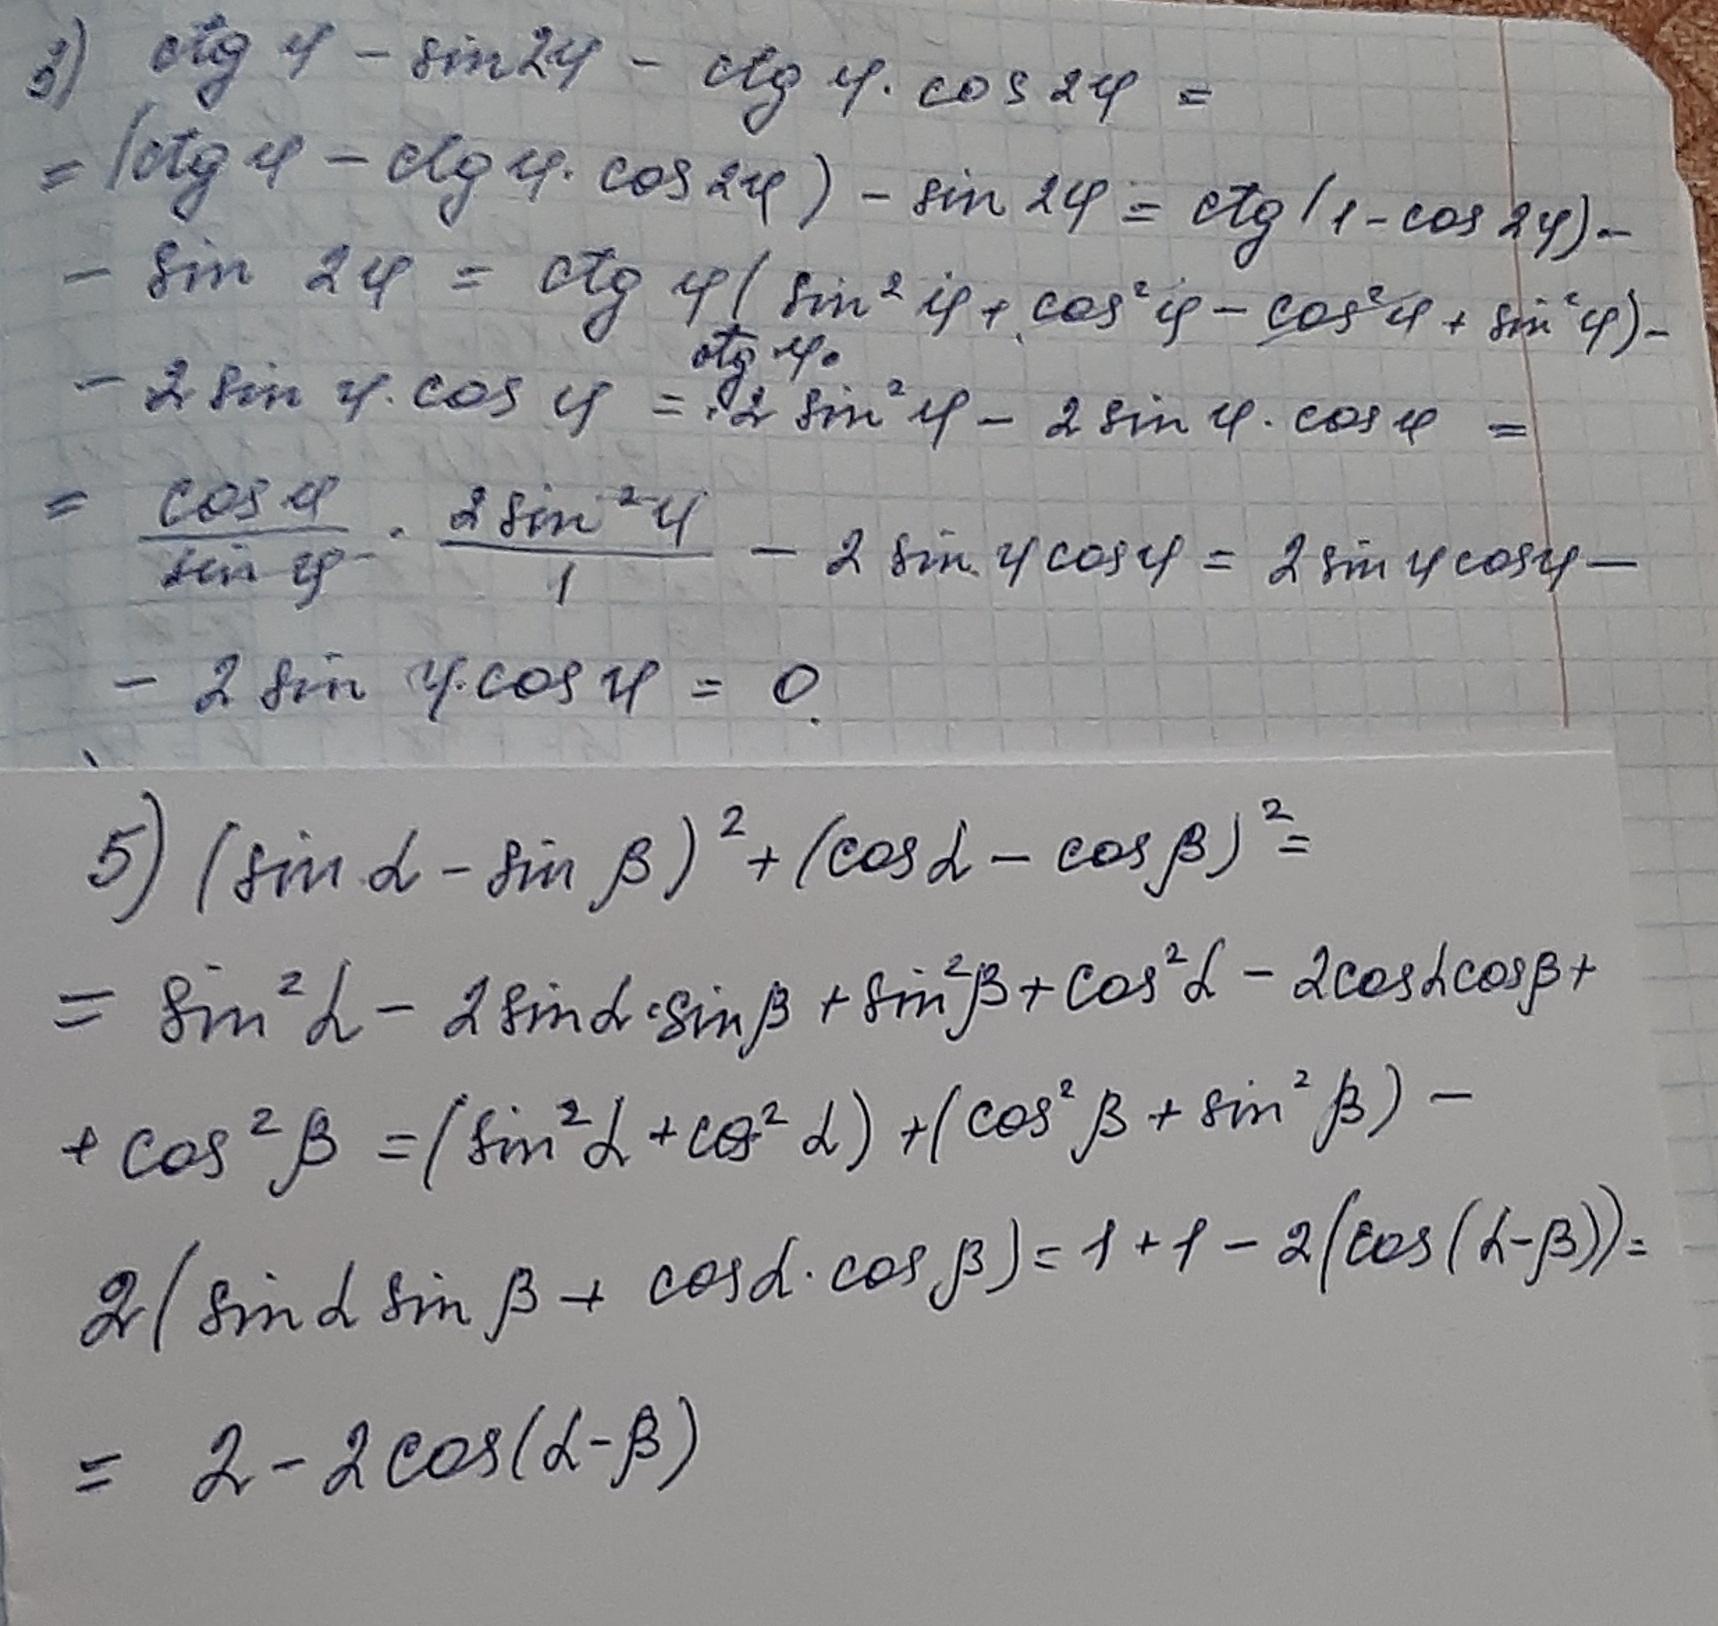 3) ctg φ - sin2φ - ctg φ · cos 2φ =
= (ctg φ - ctg φ · cos 2φ) - sin 2φ = ctg (1 - cos 2φ) -
- sin 2φ = ctg φ ( sin² φ + cos² φ - cos² φ + sin² φ) -
ctg φ ·
- 2 sin φ · cos φ = · 2 sin² φ - 2 sin φ · cos φ =
= cos φ / sin φ · 2 sin² φ / 1 - 2 sin φ cos φ = 2 sin φ cos φ -
- 2 sin φ · cos φ = 0.
5) (sin α - sin β)² + (cos α - cos β)² =
= sin² α - 2 sin α · sin β + sin² β + cos² α - 2 cos α cos β +
+ cos² β = (sin² α + cos² α) + (cos² β + sin² β) -
2 ( sin α sin β + cos α · cos β) = 1 + 1 - 2 (cos (α - β)) =
= 2 - 2 cos (α - β)